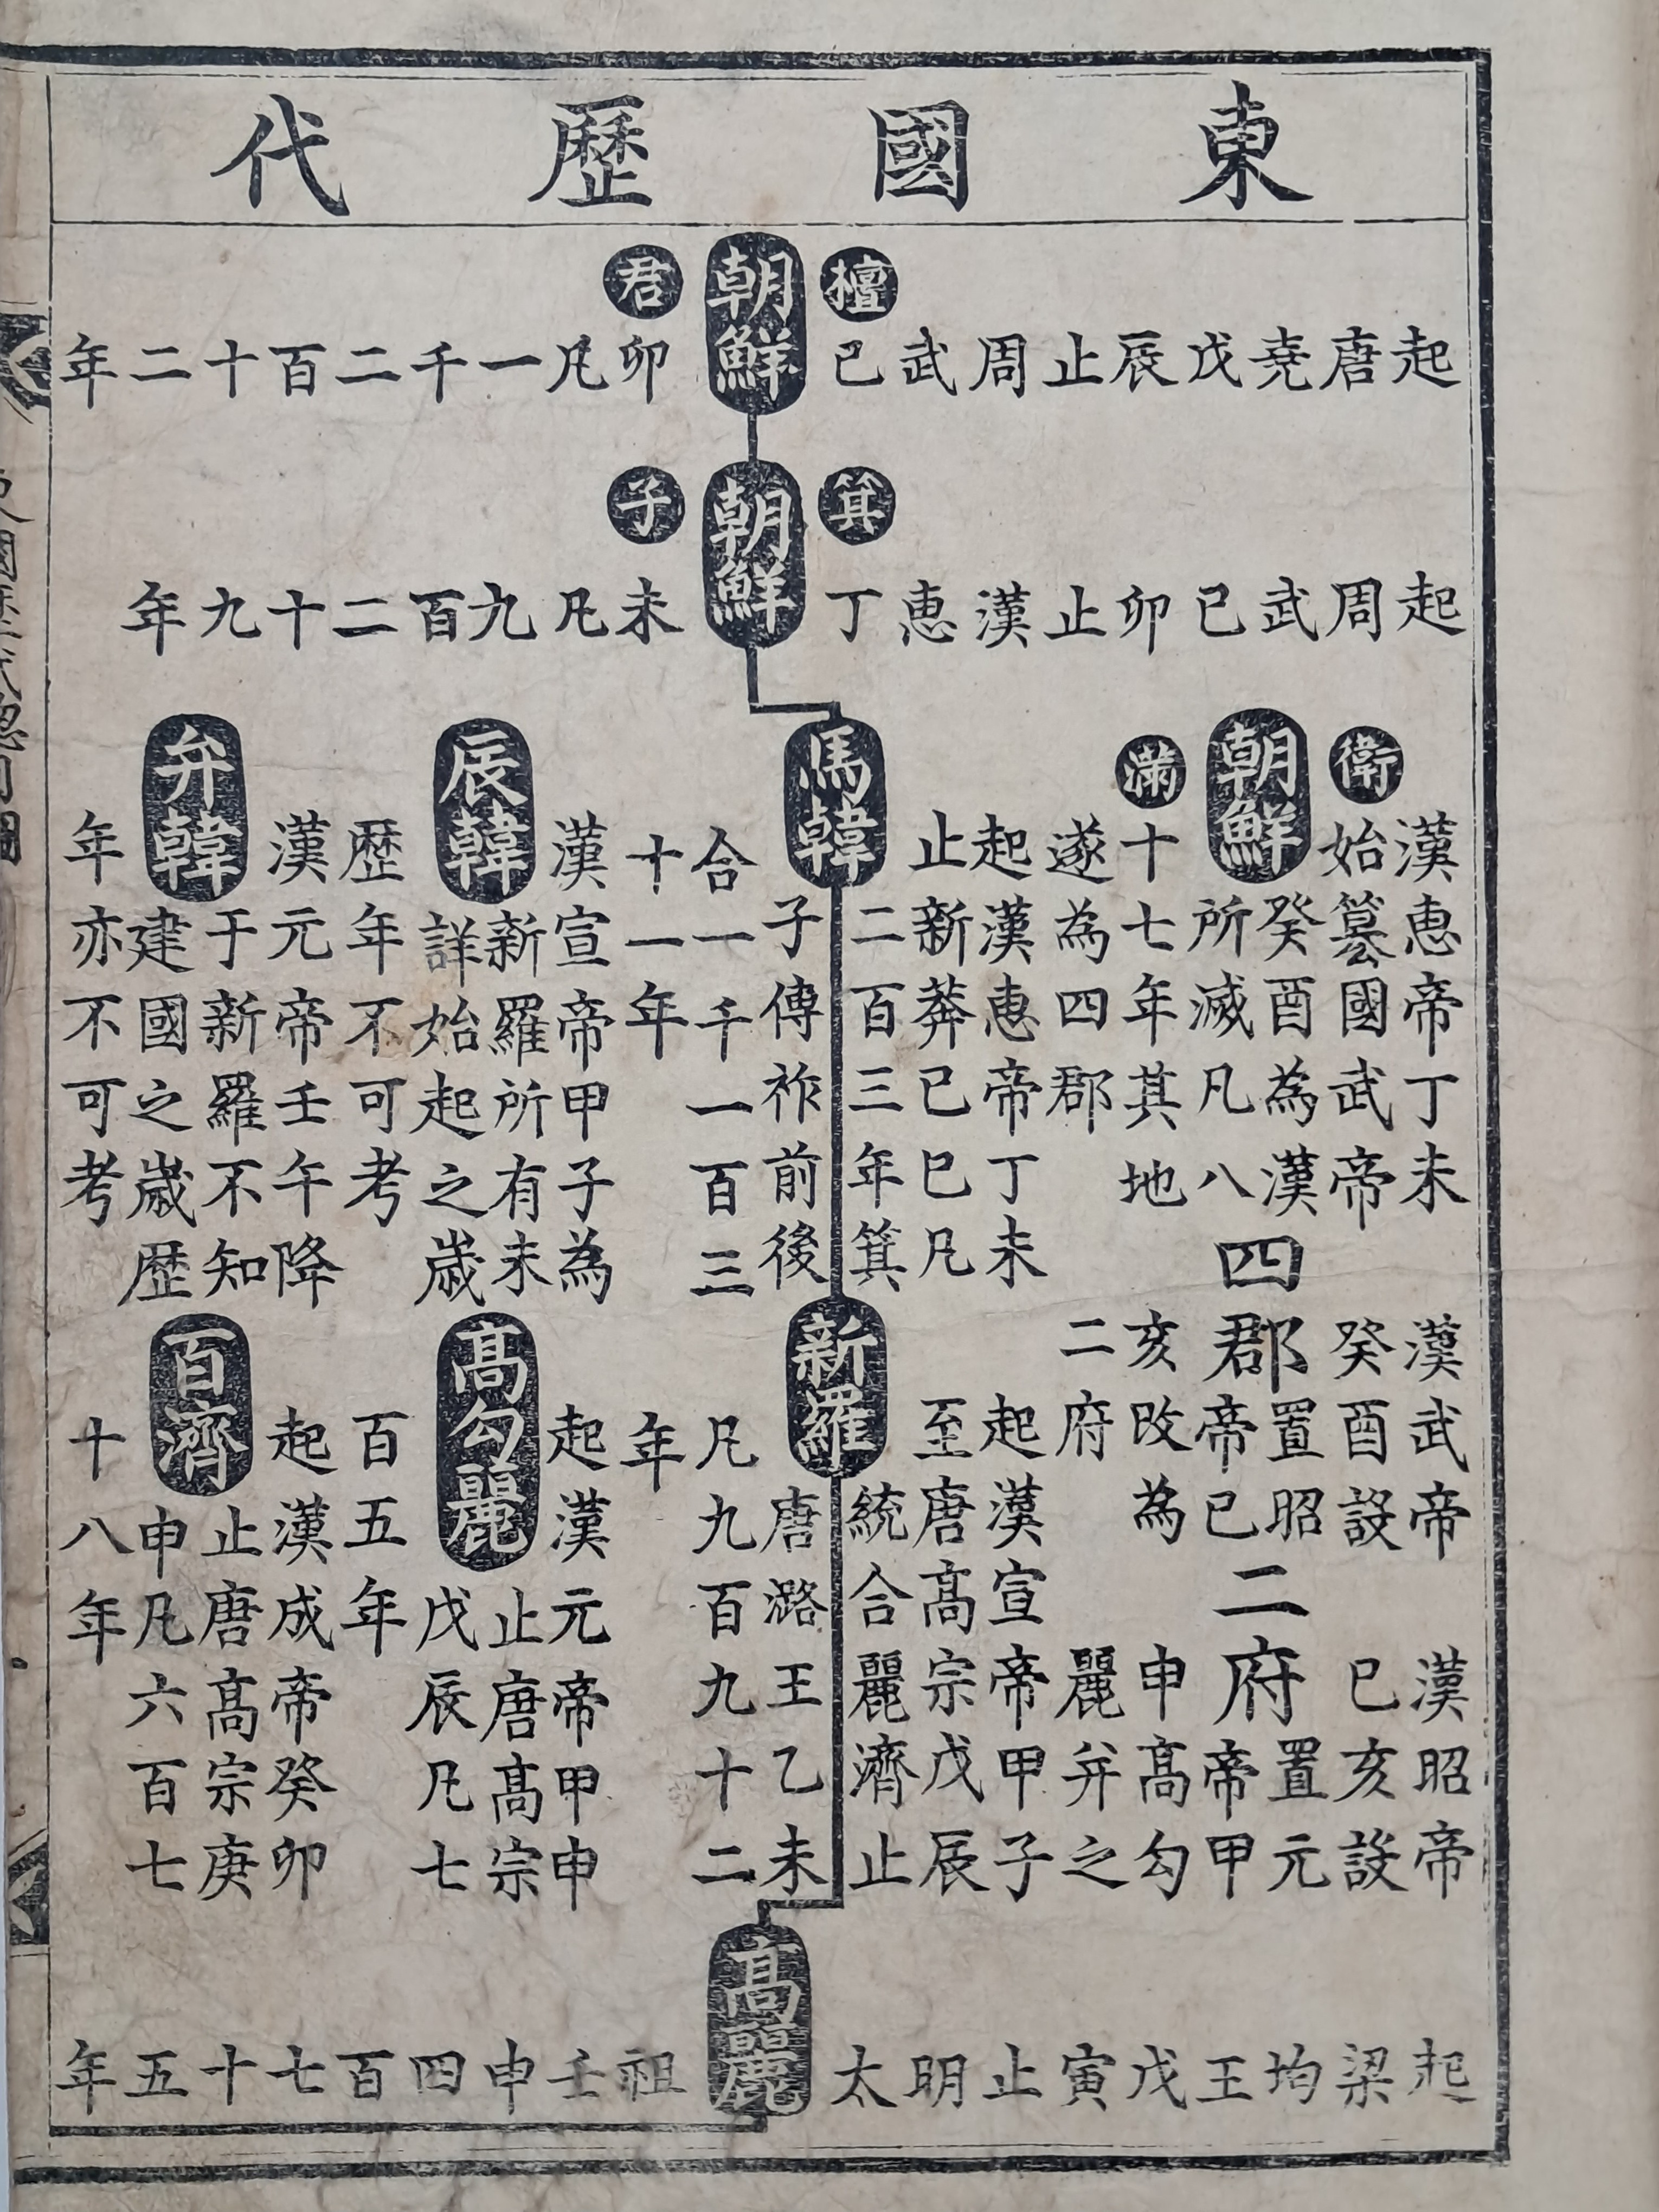 東國歷代
檀朝鮮君
起唐堯戊辰止周武己卯凡一千二百十二年
箕朝鮮子
起周武己卯止漢惠丁未凡九百二十九年
衛朝鮮滿
漢惠帝丁未
始簒國武帝
癸酉為漢
所滅凡八
十七年其地
遂為四郡
四郡
漢武帝
癸酉設
置昭
帝己
亥改為
二府
二府
漢昭帝
己亥設
置元
帝甲
申高勾
麗并之
馬韓
起漢惠帝丁未
止新莽己巳凡
二百三年箕
子傳祚前後
合一千一百三
十一年
辰韓
漢宣帝甲子為
新羅所有未
詳始起之歲
歷年不可考
弁韓
漢元帝壬午降
于新羅不知
建國之歲歷
年亦不可考
新羅
起漢宣帝甲子
至唐高宗戊辰
統合麗濟止
唐潞王乙未
凡九百九十二
年
高勾麗
起漢元帝甲申
止唐高宗
戊辰凡七
百五年
百濟
起漢成帝癸卯
止唐高宗庚
申凡六百七
十八年
高麗
起梁均王戊寅止明太祖壬申四百七十五年